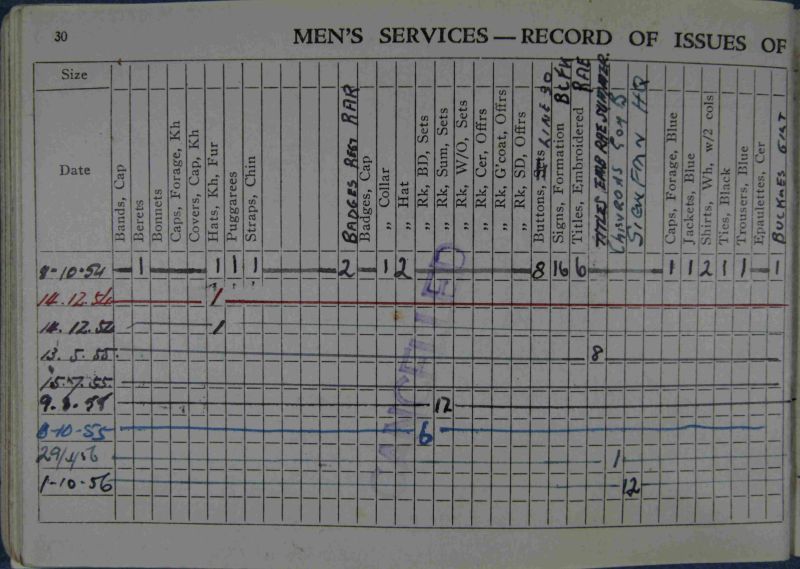 30
MEN'S SERVICES — RECORD OF ISSUES OF
Size
Date
Bands, Cap
Berets
Bonnets
Caps, Forage, Kh
Covers, Cap, Kh
Hats, Kh, Fur
Puggarees
Straps, Chin
BADGES REGT RAR
Badges, Cap
„ Collar
„ Hat
„ Rk, BD, Sets
„ Rk, Sum, Sets
„ Rk, W/O, Sets
„ Rk, Cer, Offrs
„ Rk, G'coat, Offrs
„ Rk, SD, Offrs
Buttons, Sets LINE 30
Signs, Formation
Titles, Embroidered RAE
TITLES EMB RAE SUMMER
CHEVRONS GOOD
SIGN FMN HQ
Caps, Forage, Blue
Jackets, Blue
Shirts, Wh, w/2 cols
Ties, Black
Trousers, Blue
Epaulettes, Cer
BUCKLES
8-10-54 1 1 1 1 2 1 2 8 16 6 1 1 2 1 1 1
14.12.54 1
14.12.54 1
13.5.55 8
15.7.55
9.8.55 12
8-10-55 6
29/4/56 1
1-10-56 12
CANCELLED